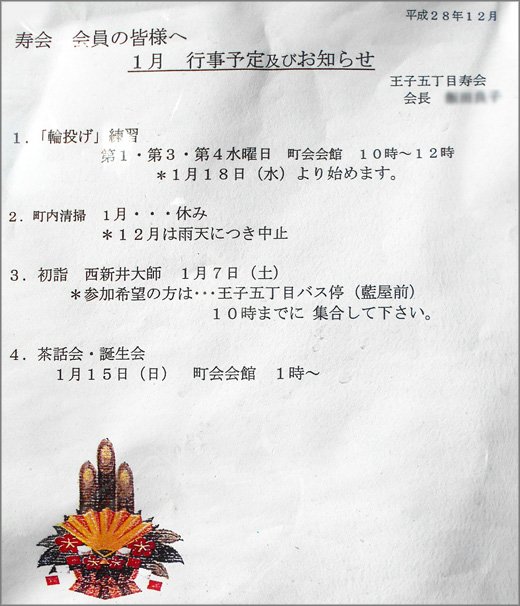 平成２８年１２月
寿会　会員の皆様へ
１月　行事予定及びお知らせ
王子五丁目寿会
会長
１．「輪投げ」練習
第１・第３・第４水曜日　町会会館　１０時～１２時
＊１月１８日（水）より始めます。
２．町内清掃　１月・・・休み
＊１２月は雨天につき中止
３．初詣　西新井大師　１月７日（土）
＊参加希望の方は･･･王子五丁目バス停（藍屋前）
１０時までに 集合して下さい。
４．茶話会・誕生会
１月１５日（日）　町会会館　１時～